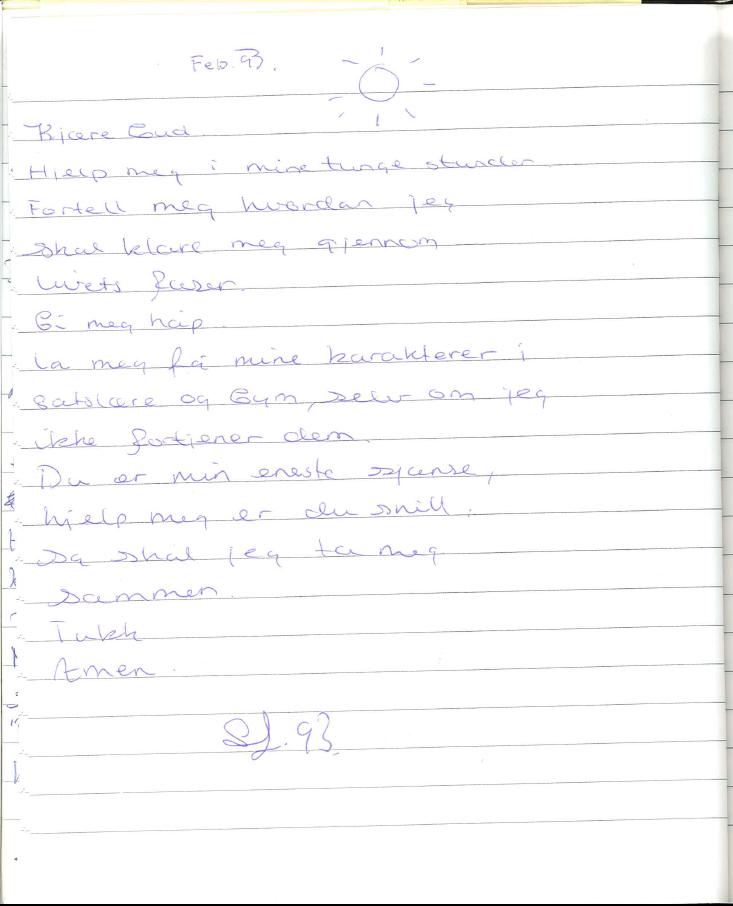 Feb. 93.
Kjære Gud
Hjelp meg i mine tunge stunder
Fortell meg hvordan jeg
skal klare meg gjennom
livets faser.
Gi meg håp.
La meg få mine karakterer i
satslære og Gym, selv om jeg
ikke fortjener dem.
Du er min eneste sjanse,
hjelp meg er du snill.
så skal jeg ta meg
sammen.
Takk
Amen.
93